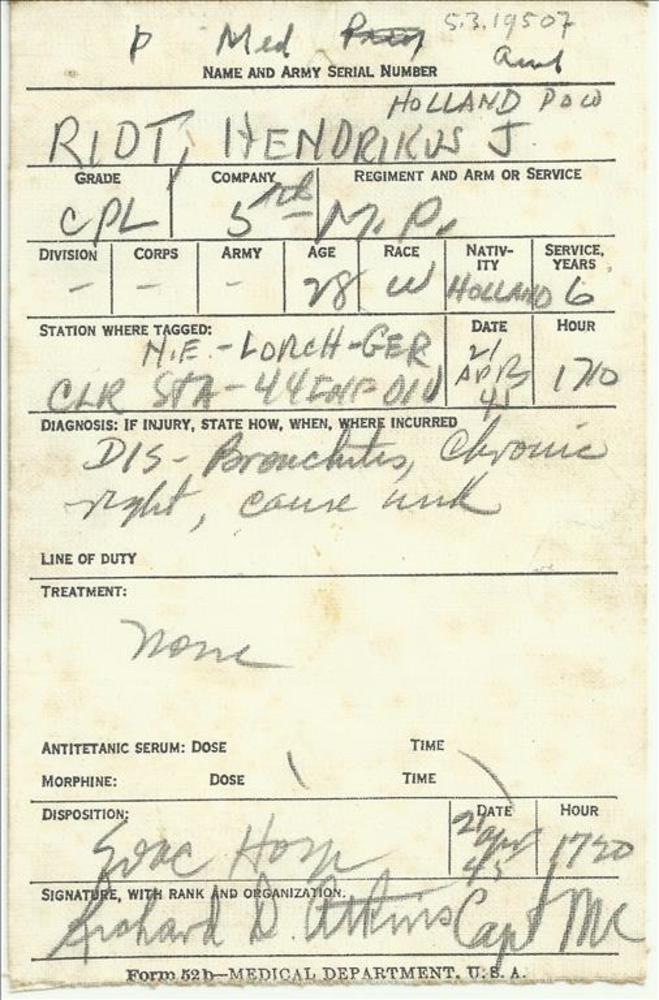 5.3.19507
P Med
Amb
NAME AND ARMY SERIAL NUMBER
HOLLAND POW
RIDT, HENDRIKUS J.
GRADE COMPANY REGIMENT AND ARM OR SERVICE
CPL 5 M.P.
DIVISION CORPS ARMY AGE RACE NATIV-ITY SERVICE, YEARS
- - - 28 W HOLLAND 6
STATION WHERE TAGGED: DATE HOUR
N.E. - LORCH - GER 21
CLR STA - 44 INF DIV APR 1710
45
DIAGNOSIS: IF INJURY, STATE HOW, WHEN, WHERE INCURRED
DIS - Bronchites, chronic
right, cause unk
LINE OF DUTY
TREATMENT:
None
ANTITETANIC SERUM: DOSE TIME
MORPHINE: DOSE TIME
DISPOSITION: DATE HOUR
Evac Hosp 21 Apr 45 1720
SIGNATURE, WITH RANK AND ORGANIZATION.
Richard D. Atkins Capt MC
Form 52b—MEDICAL DEPARTMENT, U. S. A.